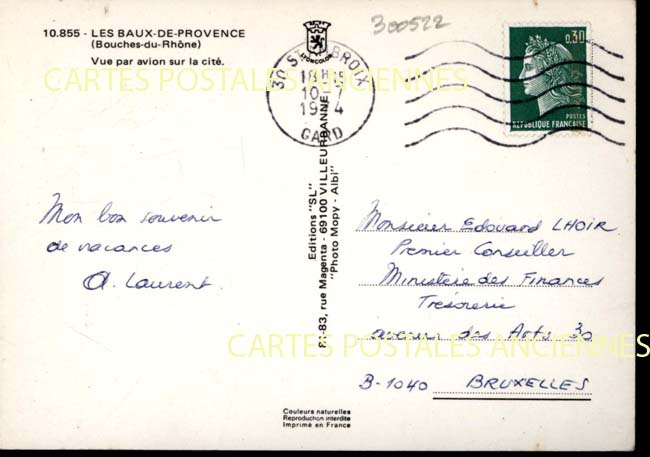 10.855 - LES BAUX-DE-PROVENCE
(Bouches-du-Rhône)
Vue par avion sur la cité.
LYONCOLOR
300522
30 ST BROIX
18H
10-7
19 4
GARD
0,30
POSTES
REPUBLIQUE FRANCAISE
CARTES POSTALES ANCIENNES
Mon bon souvenir
de vacances
A. Laurent.
Editions "SL"
81-83, rue Magenta - 69100 VILLEURBANNE
"Photo Mopy - Albi"
Monsieur Edouard LHOIR
Premier Conseiller
Ministère des Finances
Trésorerie
avenue des Arts 30
B-1040 BRUXELLES
CARTES POSTALES ANCIENNES
Couleurs naturelles
Reproduction interdite
Imprimé en France